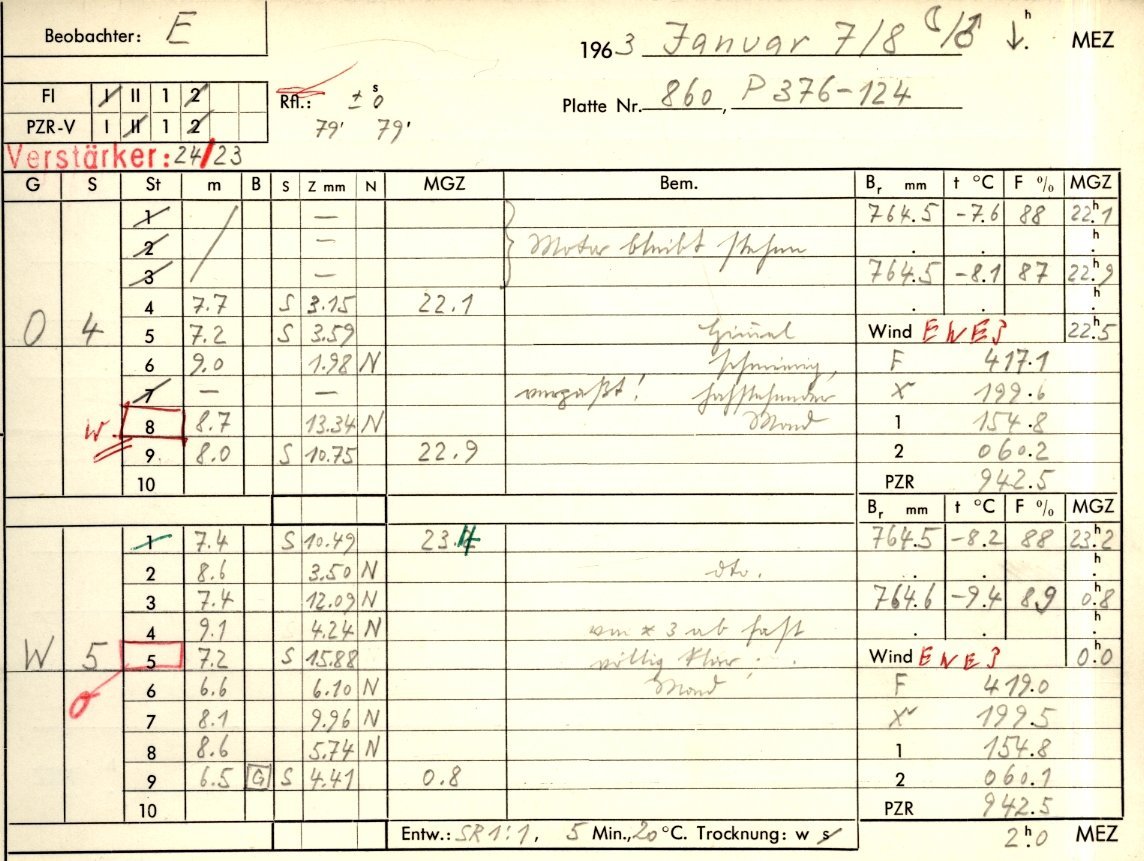 Beobachter: E
1963 Januar 7/8 ☾/♂ ↓. h MEZ
FI I II 1 2
PZR-V I II 1 2
Rfl.: ± 0 s
79' 79'
Platte Nr. 860, P 376-124
Verstärker: 24/23
G S St m B S Z mm N MGZ Bem. Br mm t °C F % MGZ
1 — 764.5 -7.6 88 22h.1
2 — Motor bleibt stehen . . h.
3 — 764.5 -8.1 87 22h.9
4 7.7 S 3.15 22.1 . . h.
O 4 5 7.2 S 3.59 Himmel Wind E N E 3 22h.5
6 9.0 1.98 N schmierig, F 417.1
7 — — verpaßt! 199.6
W. 8 8.7 13.34 N Mond 1 154.8
9 8.0 S 10.75 22.9 2 060.2
10 PZR 942.5
Br mm t °C F % MGZ
1 7.4 S 10.49 764.5 -8.2 88 23h.2
2 8.6 3.50 N dto. . . h.
3 7.4 12.09 N 764.6 -9.4 89 0h.8
4 9.1 4.24 N von * 3 ab fast . . h.
W 5 5 7.2 S 15.88 völlig klar. Wind E N E 3 0h.0
6 6.6 6.10 N Mond F 419.0
7 8.1 9.96 N 199.5
8 8.6 5.74 N 1 154.8
9 6.5 G S 4.41 0.8 2 060.1
10 PZR 942.5
Entw.: SR 1:1, 5 Min., 20 °C. Trocknung: w s 2h.0 MEZ